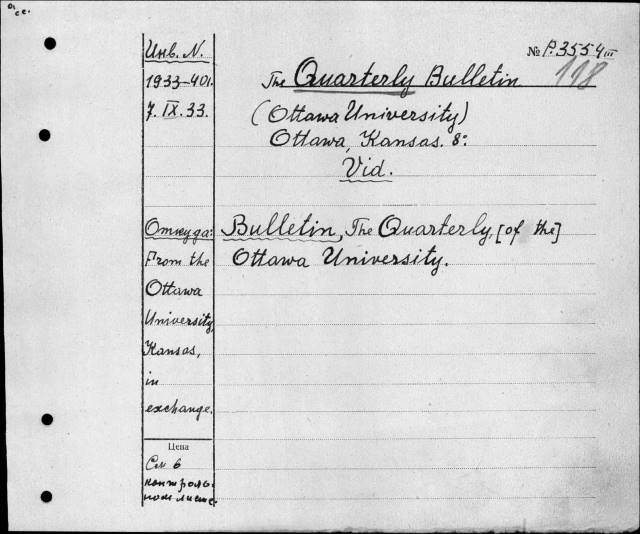 Инв. N.
1933-401.
7. IX. 33.
№ P.3554 III
118
The Quarterly Bulletin
(Ottawa University)
Ottawa, Kansas. 8:
Vid.
Откуда:
From the
Ottawa
University,
Kansas,
in
exchange.
Bulletin, The Quarterly, [of the]
Ottawa University.
Цена
См. в
контроль-
ном листе.